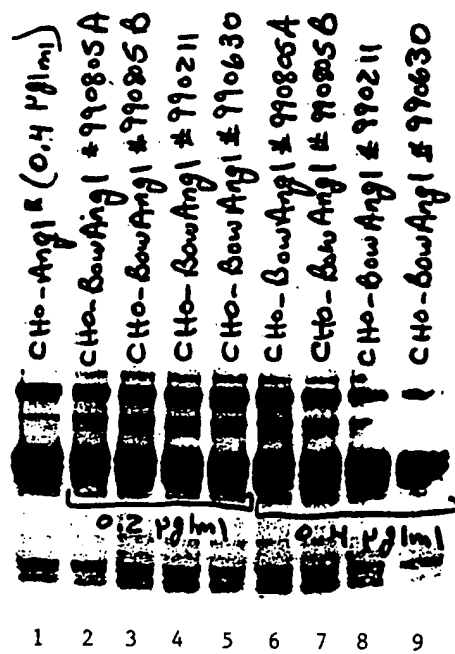 CHO-Ang1R (0.4 µg/ml)
CHO-BowAng1 #990805A
CHO-BowAng1 #990805B
CHO-BowAng1 #990211
CHO-BowAng1 #990630
CHO-BowAng1 #990805A
CHO-BowAng1 #990805B
CHO-BowAng1 #990211
CHO-BowAng1 #990630
0.2 µg/ml 0.4 µg/ml
1 2 3 4 5 6 7 8 9